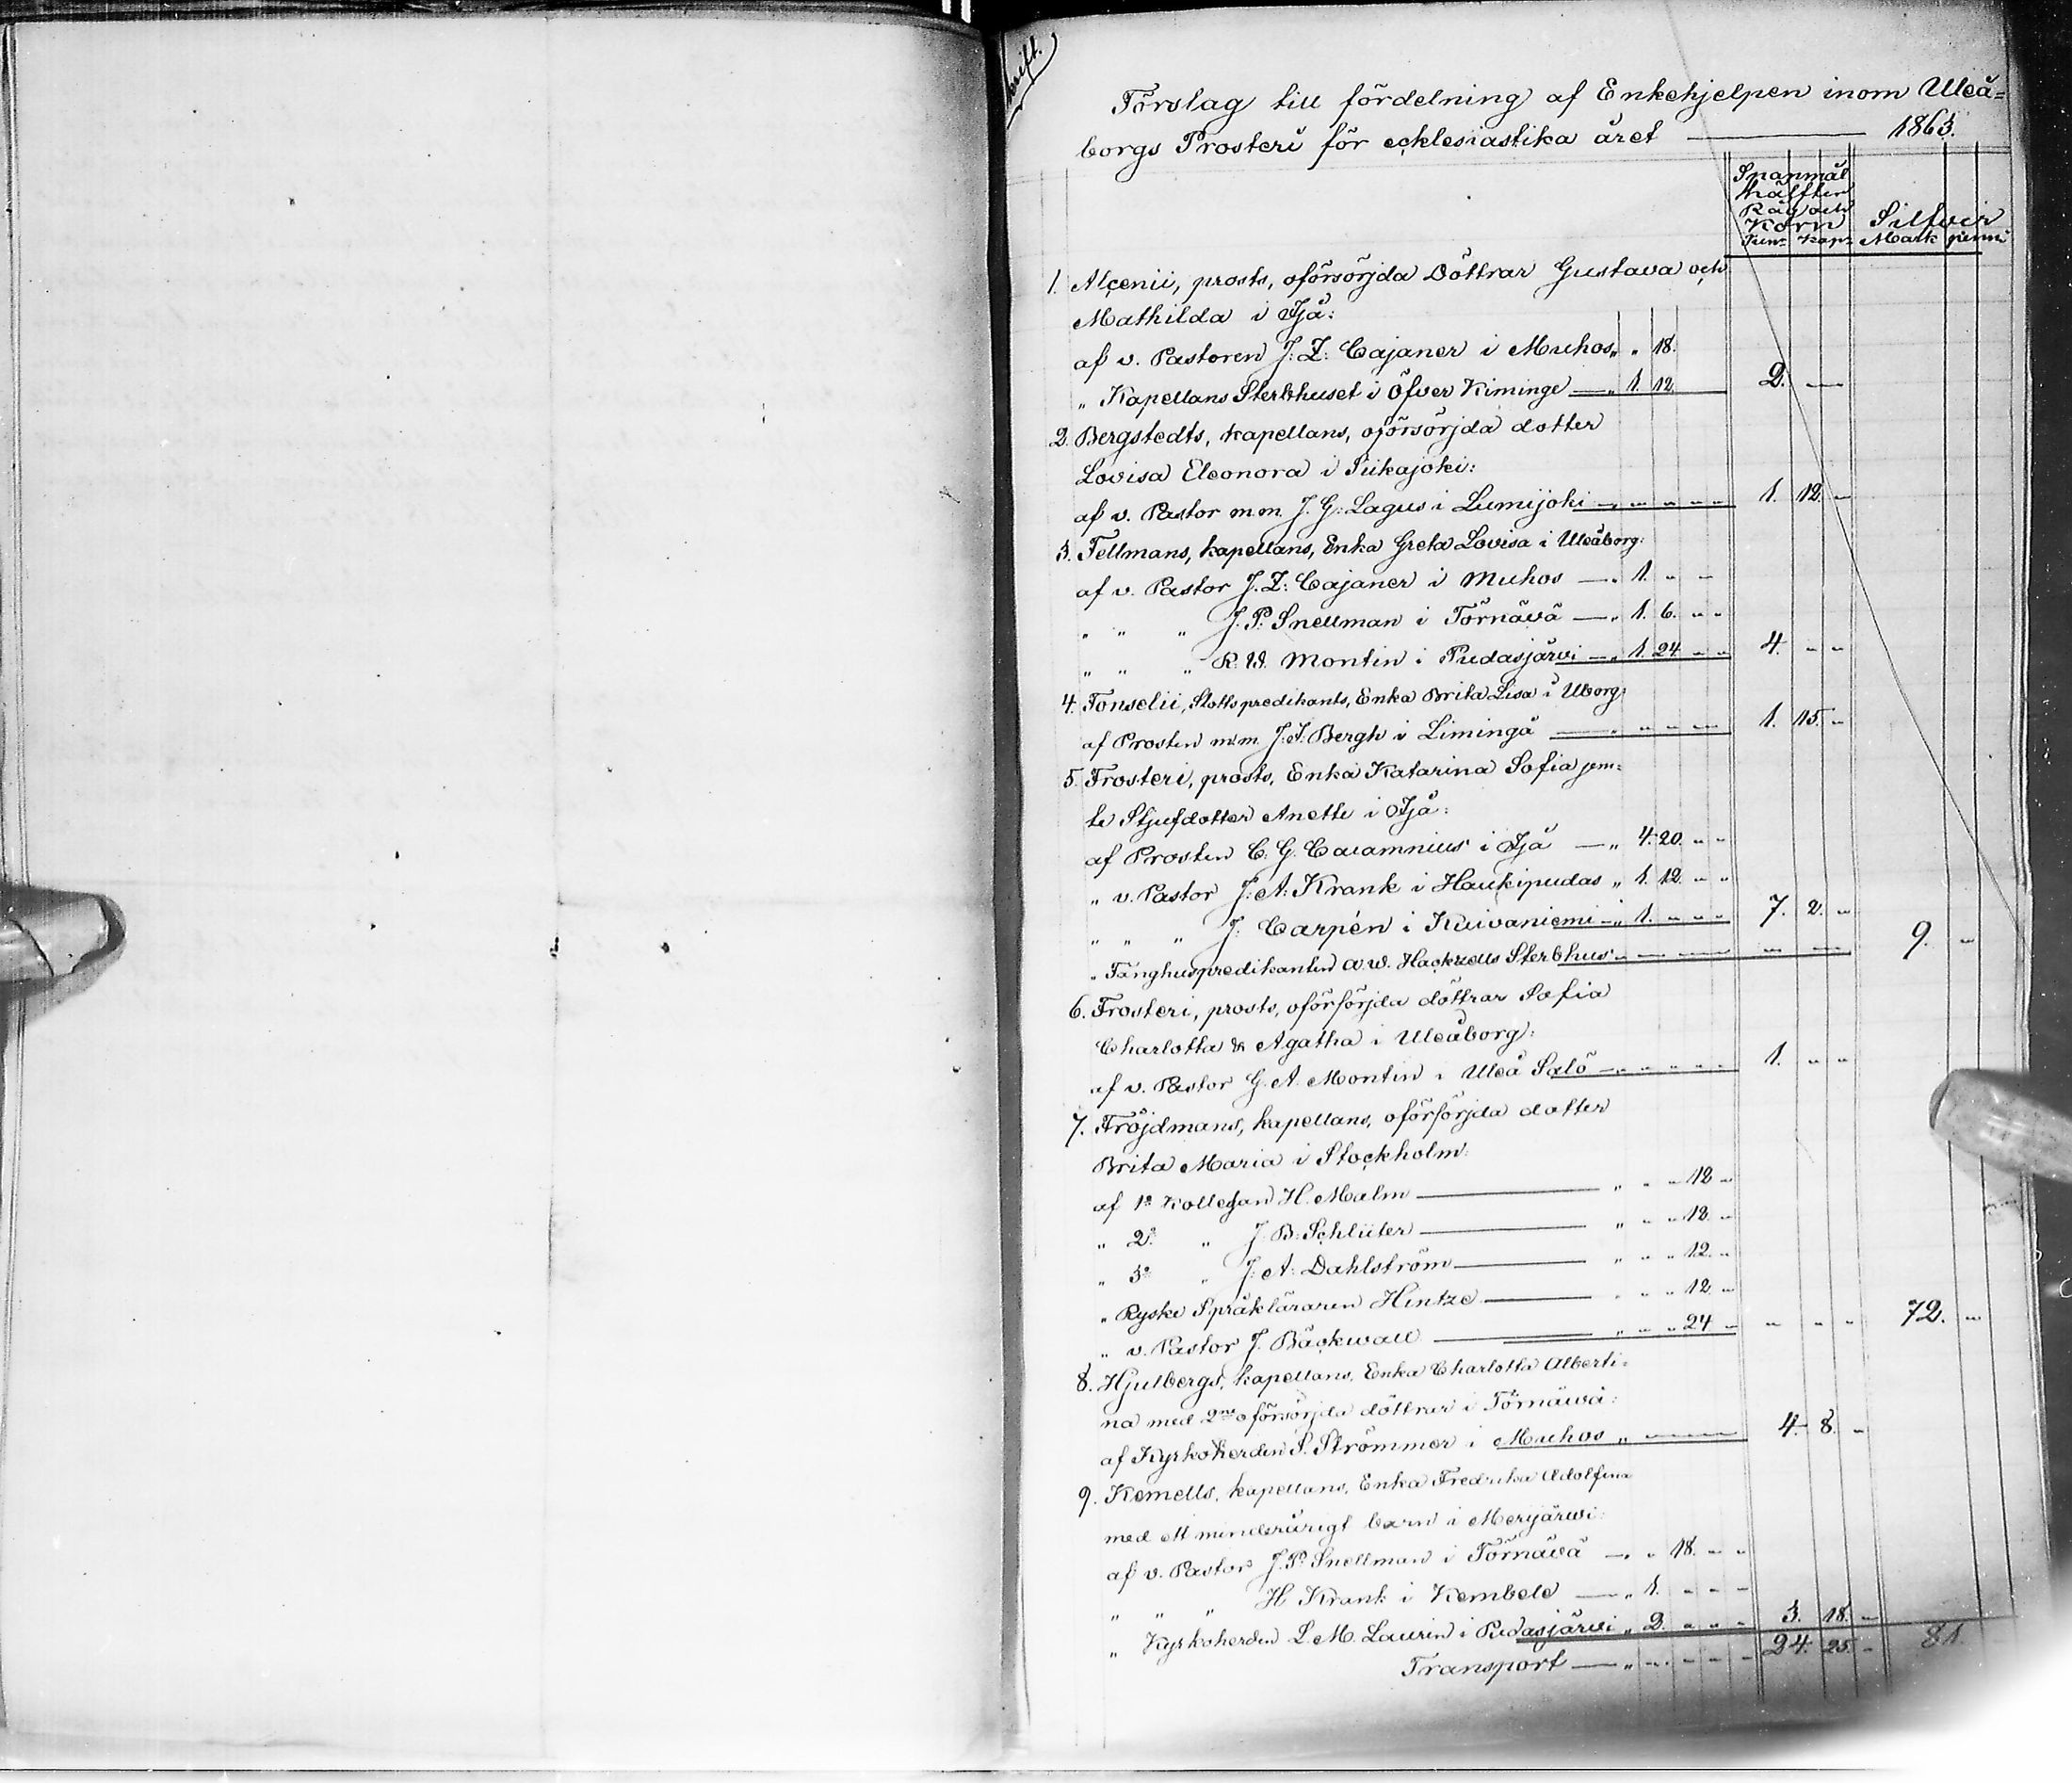 Förslag till fördelning af Enkehjelpen inom Uleå=
borgs Prosteri för ecklesiastika året — 1863.
Spanmål
hälften
Råg och
Korn Silfver
Tun: Kap: Mark penni
1. Alcenii, prosts, oförsörjda Döttrar Gustava och
Mathilda i Ijå:
af v. Pastoren J: Z: Cajaner i Muhos „ „ 18.
„ Kapellans Sterbhuset i Öfver Kiminge — „ 1. 12. 2. —
2. Bergstedts, kapellans, oförsörjda dotter
Lovisa Eleonora i Siikajoki:
af v. Pastor m.m. J. G: Lagus i Lumijoki — „ „ „ „ 1. 12. „
3. Fellmans, kapellans, Enka Greta Lovisa i Uleåborg:
af v. Pastor J. Z: Cajaner i Muhos — „ 1. „ „
„ „ „ J. P: Snellman i Törnävä — „ 1. 6. „ „
„ „ „ R. W. Montin i Pudasjärvi — „ 1. 24 „ „ 4. „ „
4. Fonselii, Slottspredikants, Enka Brita Lisa i Uborg:
af Prosten m.m. J: F: Bergh i Limingå — „ „ „ 1. 15. „
5. Frosteri, prosts, Enka Katarina Sofia jem=
te Stjufdotter Anette i Ijå:
af Prosten C. G. Calamnius i Ijå — „ 4. 20. „ „
„ v. Pastor J: A: Krank i Haukipudas „ 1. 12. „ „
„ „ „ J: Carpén i Kuivaniemi — „ 1. „ „ „ 7. 2. „
„ Fånghuspredikanten A. W. Hackzells Sterbhus „ — — — — 9. „
6. Frosteri, prosts, oförsörjda döttrar Sofia
Charlotta & Agatha i Uleåborg:
af v. Pastor G. A. Montin i Uleå Salo — „ „ „ „ 1. „ „
7. Fröjdmans, kapellans, oförsörjda dotter
Brita Maria i Stockholm:
af 1e Kollegan H. Malm — „ „ „ 12 „
„ 2e „ J. B. Schlüter — „ „ „ 12. „
„ 3e „ J: A: Dahlström — „ „ „ 12. „
„ Ryske Språkläraren Hintze — „ „ „ 12 „
„ v. Pastor J. Bäckwall — „ „ „ 24 „ „ „ „ 72. „
8. Hjulbergs, kapellans, Enka Charlotta Alberti=
na med 2ne oförsörjda döttrar i Törnäwä:
af Kyrkoherden S. Strömmer i Muhos „ — — 4. 8. „
9. Kemells, kapellans, Enka Fredrika Adolfina
med ett minderårigt barn i Merijärwi:
af v. Pastor J. P. Snellman i Törnävä — „ „ 18. „ „
„ „ „ H Krank i Kembele — „ 1. „ „ „
„ Kyrkoherden L. M. Laurin i Pudasjärvi „ 2. „ „ „ 3. 18. „
Transport — „ „ „ „ „ 24. 25. „ 81.